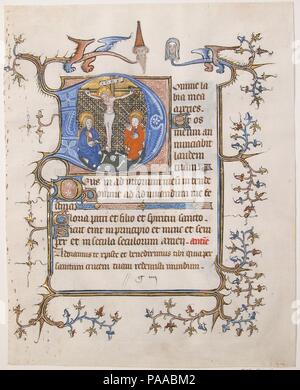 omine la
bia mea
aperies.
Et os
meum an
nunciabit
laudem
tuam.
Deus in adiutorium meum intende
Domine ad adiuvandum me fe
stina
Gloria patri et filio et spiritui sancto.
Sicut erat in principio et nunc et sem
per et in secula seculorum amen. antiene
Adoramus te xpiste et benedicimus tibi quia per
sanctam crucem tuam redemisti mundum.
alamy
www.alamy.com
PAABM2